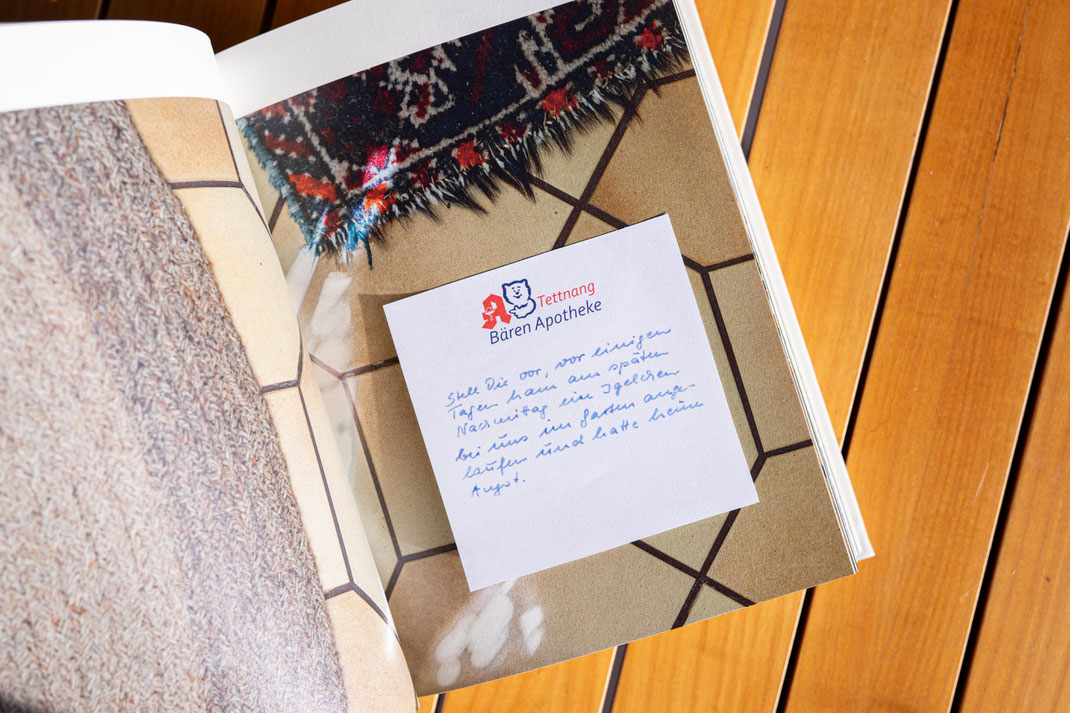 Tettnang
Bären Apotheke
Stell Dir vor, vor einigen
Tagen kam am späten
Nachmittag ein Igelchen
bei uns im Garten ange-
laufen und hatte keine
Angst.